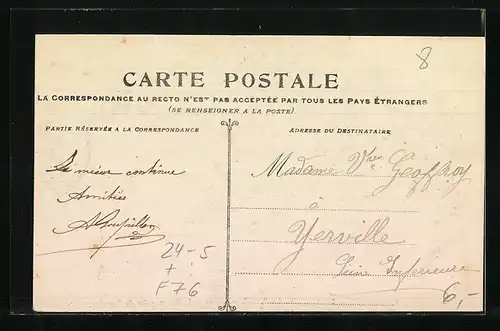 8
CARTE POSTALE
LA CORRESPONDANCE AU RECTO N'EST PAS ACCEPTÉE PAR TOUS LES PAYS ÉTRANGERS
(SE RENSEIGNER A LA POSTE)
PARTIE RÉSERVÉE A LA CORRESPONDANCE
Le mieux continue
Amitiés
ADRESSE DU DESTINATAIRE
Madame Vve Geoffroy
à
Yerville
Seine Inférieure
24-5
+
F76
6,-